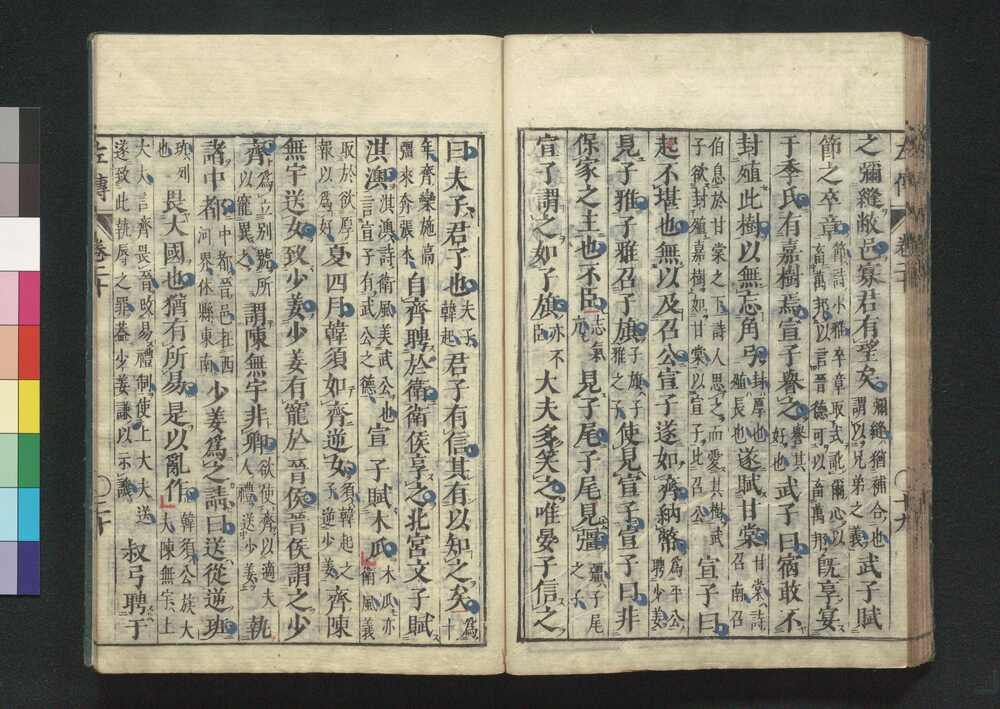 之彌縫敝邑寡君有望矣彌縫猶補合也謂以兄弟之義武子賦
節之卒章節詩小雅卒章取式訛爾心以畜萬邦以言晉德可以畜萬邦既享宴
于季氏有嘉樹焉宣子譽之譽其好也武子曰宿敢不
封殖此樹以無忘角弓封厚也殖長也遂賦甘棠甘棠詩召南召
伯息於甘棠之下詩人思之而愛其樹武子欲封殖嘉樹如甘棠以宣子比召公宣子曰
起不堪也無以及召公宣子遂如齊納幣為平公聘少姜
見子雅子雅召子旗子旗子雅之子使見宣子宣子曰非
保家之主也不臣志氣亢見子尾子尾見彊彊子尾之子
宣子謂之如子旗亦不臣大夫多笑之唯晏子信之
左傳 卷二十 〇十九
曰夫子君子也夫子韓起君子有信其有以知之矣為十
年齊欒施高彊來奔張本自齊聘於衛衛侯享之北宮文子賦
淇澳淇澳詩衛風美武公也言宣子有武公之德宣子賦木瓜木瓜亦衛風義
取於欲厚報以為好夏四月韓須如齊逆女須韓起之子逆少姜齊陳
無宇送女致少姜少姜有寵於晉侯晉侯謂之少
齊為立別號所以寵異之謂陳無宇非卿欲使齊以適夫人禮送少姜執
諸中都中都晉邑在西河界休縣東南少姜為之請曰送從逆班
班列也畏大國也猶有所易是以亂作韓須公族大夫陳無宇上
大夫言齊畏晉改易禮制使上大夫送遂致此執辱之罪蓋少姜謙以示譏叔弓聘于
左傳 卷二十 〇二十